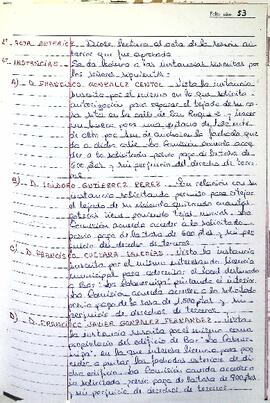 Folio núm. 53
1º ACTA ANTERIOR.- Dióse lectura al acta de la sesión an-
terior que fue aprobada
2º INSTANCIAS.- Se da lectura a las instancias suscritas por
los señores siguientes:
A).- D. FRANCISCO GONZALEZ - Vista la instancia
suscrita por el mismo en la que solicita
autorización para reparar el tejado de su ca-
sa sita en la calle de San Roque y hacer
un hueco para una ventana de
de alto por de ancho en la fachada que
da a dicha calle. La Comisión acuerda acce-
der a lo solicitado previo pago de la tasa de
600 ptas y sin perjuicio del derecho de terce-
ros.
B).- D. ISIDORO GUTIERREZ PEREZ.- En relación con su
instancia solicitando permiso para
el tejado de su vivienda
La
Comisión acuerda acceder a lo solicitado.
previo pago de la tasa de 600 ptas y sin per-
juicio del derecho de terceros.
C).- D. FRANCISCO GUEVARA IGLESIAS.- Vista la instancia
suscrita por el mismo interesando licencia
municipal para adecentar el local destinado
a Bar. La Catacumba pintando el interior.
La Comisión acuerda acceder a lo solicitado
previo pago de la tasa de 1.800 ptas y sin
perjuicio de derechos de terceros.
D).- D. FRANCISCO JAVIER GONZALEZ FERNANDEZ.- Vista
la instancia suscrita por el mismo como
propietario del edificio de Bar "La Catacum-
ba", en la que interesa licencia para pro-
ceder a pintar las fachadas exteriores de di-
cho edificio. La Comisión acuerda acceder a
lo solicitado previo pago de la tasa de 900 ptas
y sin perjuicio de derechos de terceros.